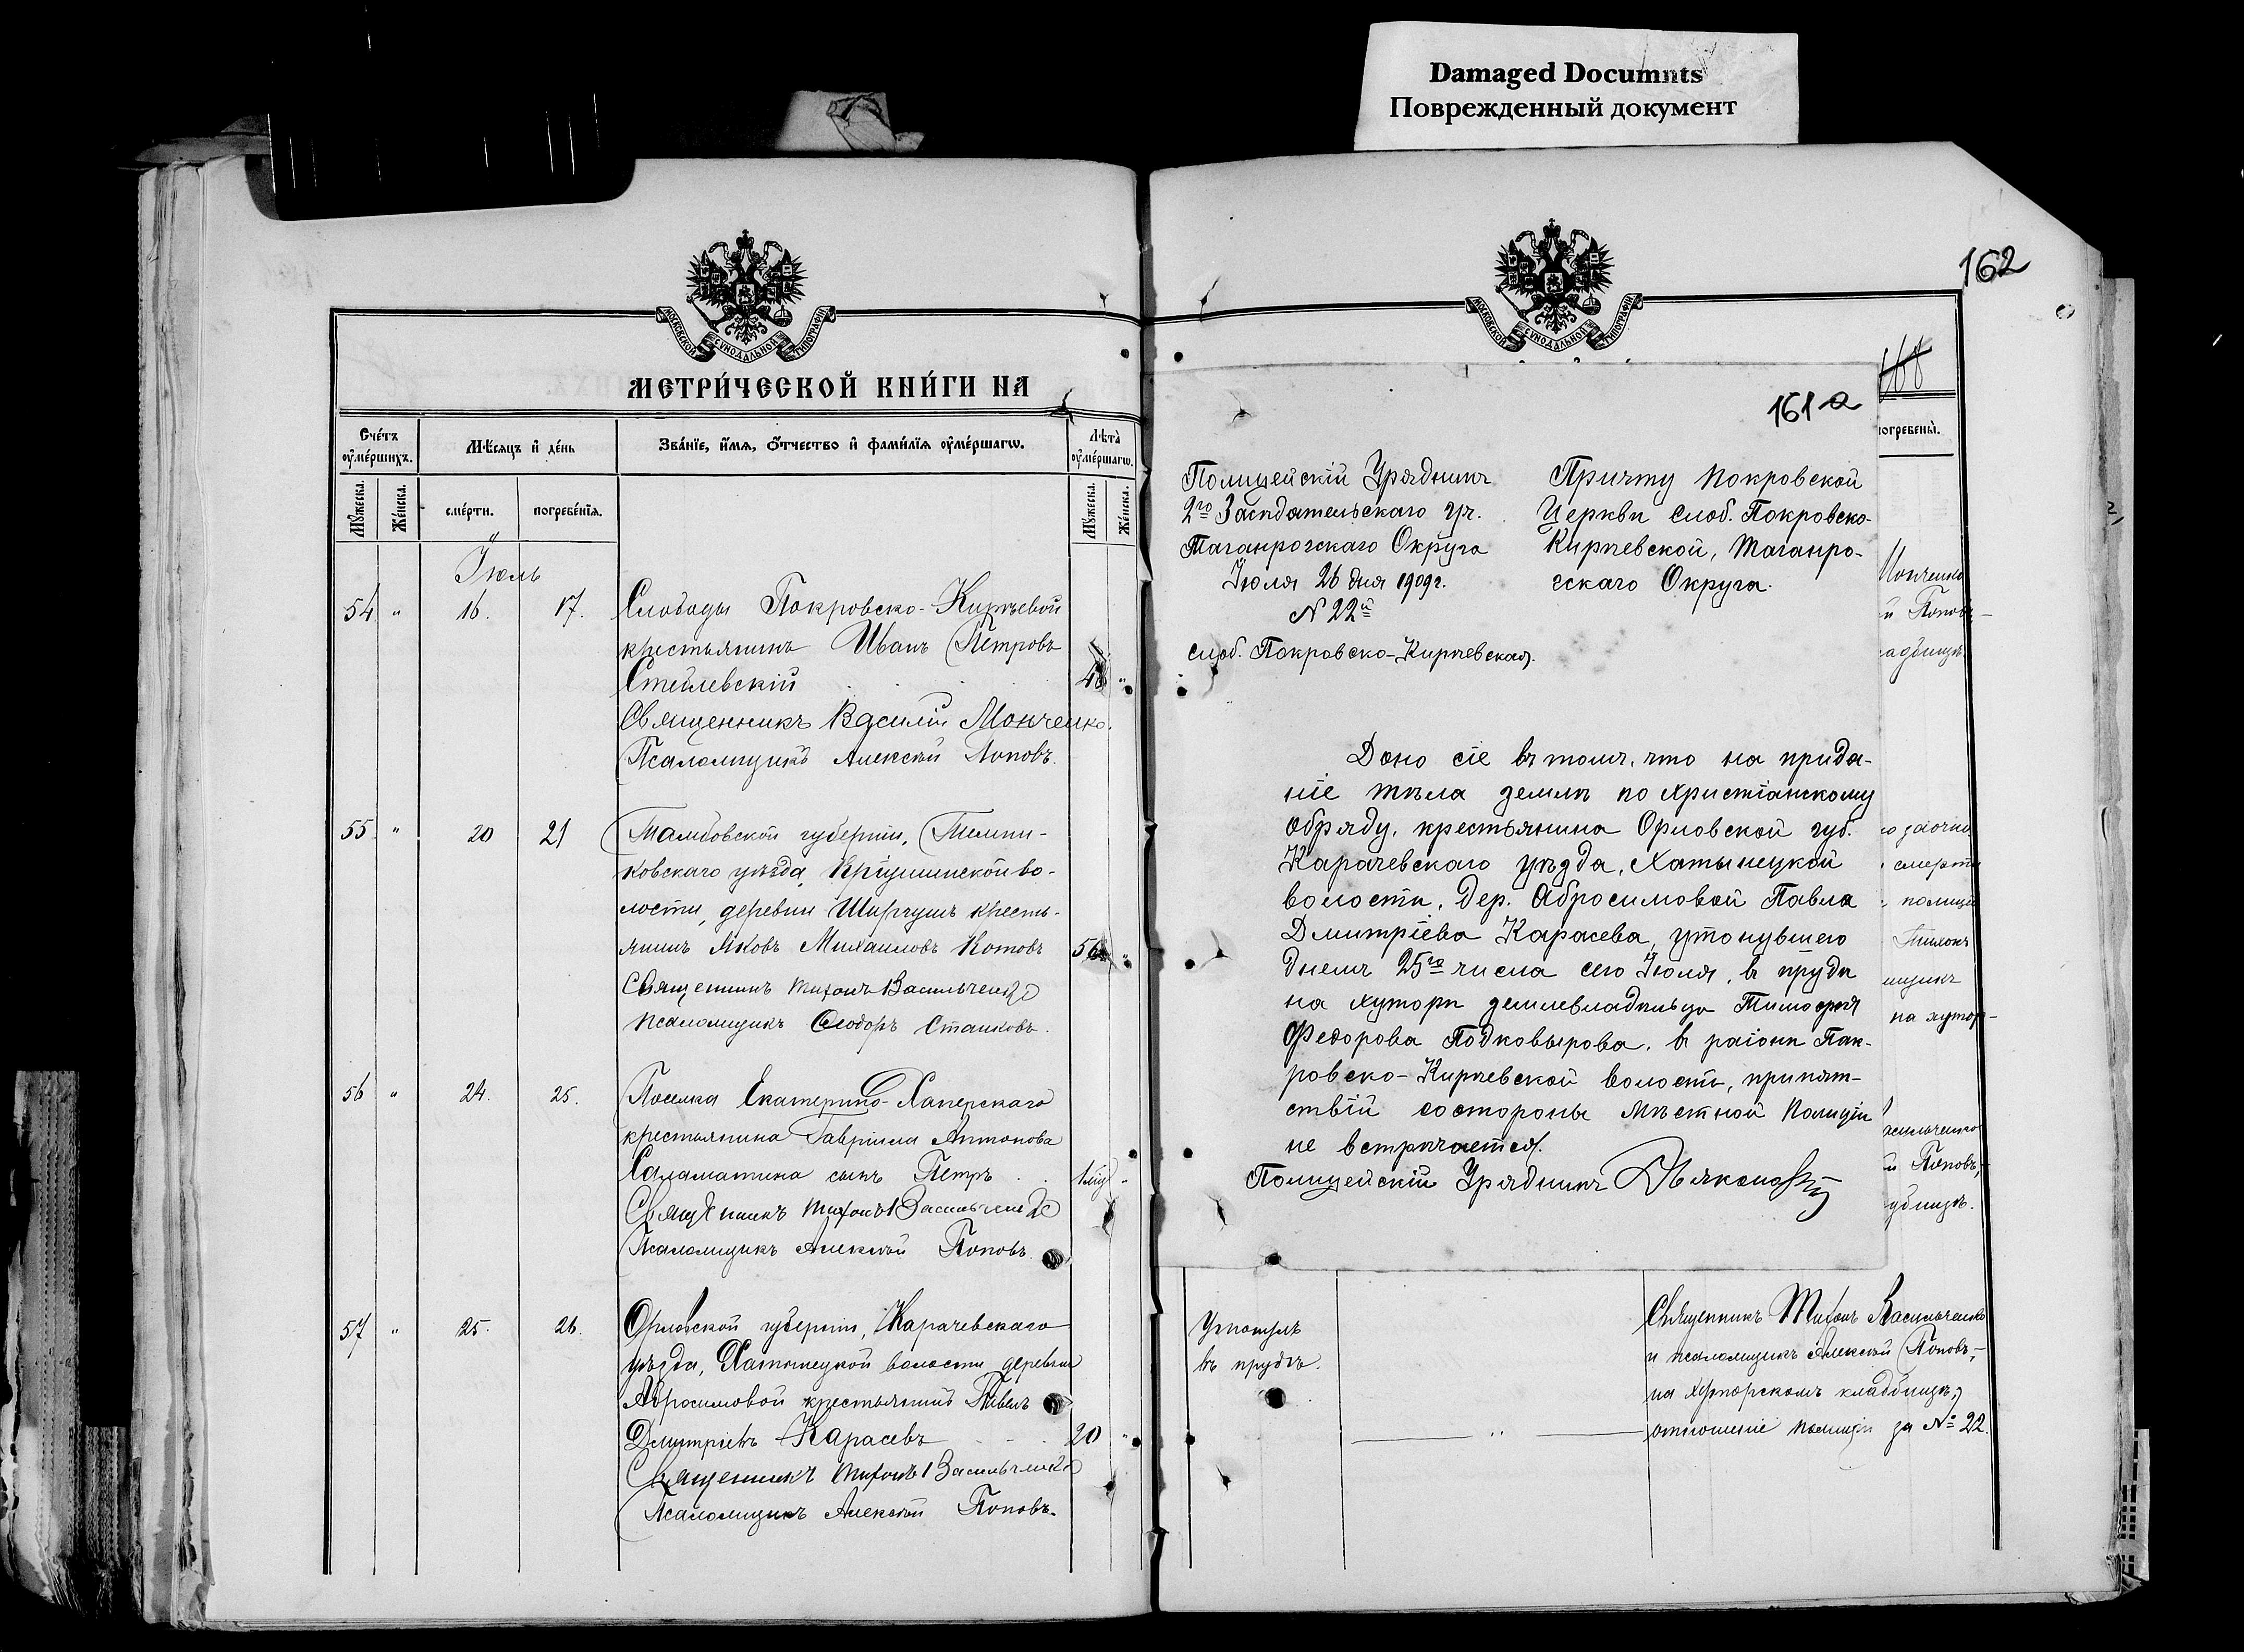 Damaged Documnts
Поврежденный документ
МОСКОВСКОЙ СѴНОДАЛЬНОЙ ТИПОГРАФІИ
МЕТРИ́ЧЕСКОЙ КНИ́ГИ НА
Сче́тъ оуме́ршихъ.
Мѣ́сяцъ и де́нь
Зва́нїе, и́мя, о́тчество и фами́лїя оуме́ршагѡ.
Лѣта̀ оуме́ршагѡ.
Му́жеска.
Же́нска.
сме́рти.
погребе́нїя.
Му́жеска.
Же́нска.
Іюль
54 " 16. 17. Слободы Покровско-Кирѣевой
крестьянинъ Иванъ Петровъ
Стеблевскій 48 "
Священникъ Василій Монченко.
Псаломщикъ Алексѣй Поповъ.
55 " 20 21 Тамбовской губерніи, Темни-
ковскаго уѣзда, Кріушинской во-
лости, деревни Ширгушъ кресть-
янинъ Яковъ Михаиловъ Котовъ 56 "
Священникъ Тихонъ Васильченко
псаломщикъ Ѳеодоръ Станковъ.
56 " 24. 25. Поселка Екатерино-Хаперскаго
крестьянина Гавріила Антонова
Саламатина сынъ Петръ 1 "
Священникъ Тихонъ Васильченко
Псаломщикъ Алексѣй Поповъ.
57 " 25. 26. Орловской губерніи, Карачевскаго
уѣзда, Хатынецкой волости деревни
Абросимовой крестьянинъ Павелъ
Дмитріевъ Карасевъ 20 "
Священникъ Тихонъ Васильченко
Псаломщикъ Алексѣй Поповъ.
МОСКОВСКОЙ СѴНОДАЛЬНОЙ ТИПОГРАФІИ
162
161 а
погребены̀.
Полицейскій Урядникъ
2го Засѣдательскаго уч.
Таганрогскаго Округа
Іюля 26 дня 1909 г.
N 22й
слоб. Покровско-Кирѣевская.
Причту Покровской
Церкви слоб. Покровско-
Кирѣевской, Таганро-
гскаго Округа.
Дано сіе въ томъ, что на преда-
ніе тѣла землѣ по христіанскому
обряду, крестьянина Орловской губ.
Карачевскаго уѣзда, Хатынецкой
волости, дер. Абросимовой Павла
Дмитріева Карасева, утонувшего
днемъ 25го числа сего Іюля, въ прудѣ
на хуторѣ землевладѣльца Тимофея
Федорова Подковырова, в раіонѣ Пок-
ровско-Кирѣевской волости, препят-
ствій состороны мѣстной Полиціи
не встрѣчается.
Полицейскій Урядникъ
Монченко
й Поповъ,-
адбищѣ.
заочно
смерти
полиціи
Тихонъ
мщикъ
на хутор-
асильченко
й Поповъ,-
дбищѣ.
Утонулъ
въ прудѣ.
"
Священникъ Тихонъ Васильченко
и псаломщикъ Алексѣй Поповъ,-
на хуторскомъ кладбищѣ,
отношеніе полиціи за № 22.